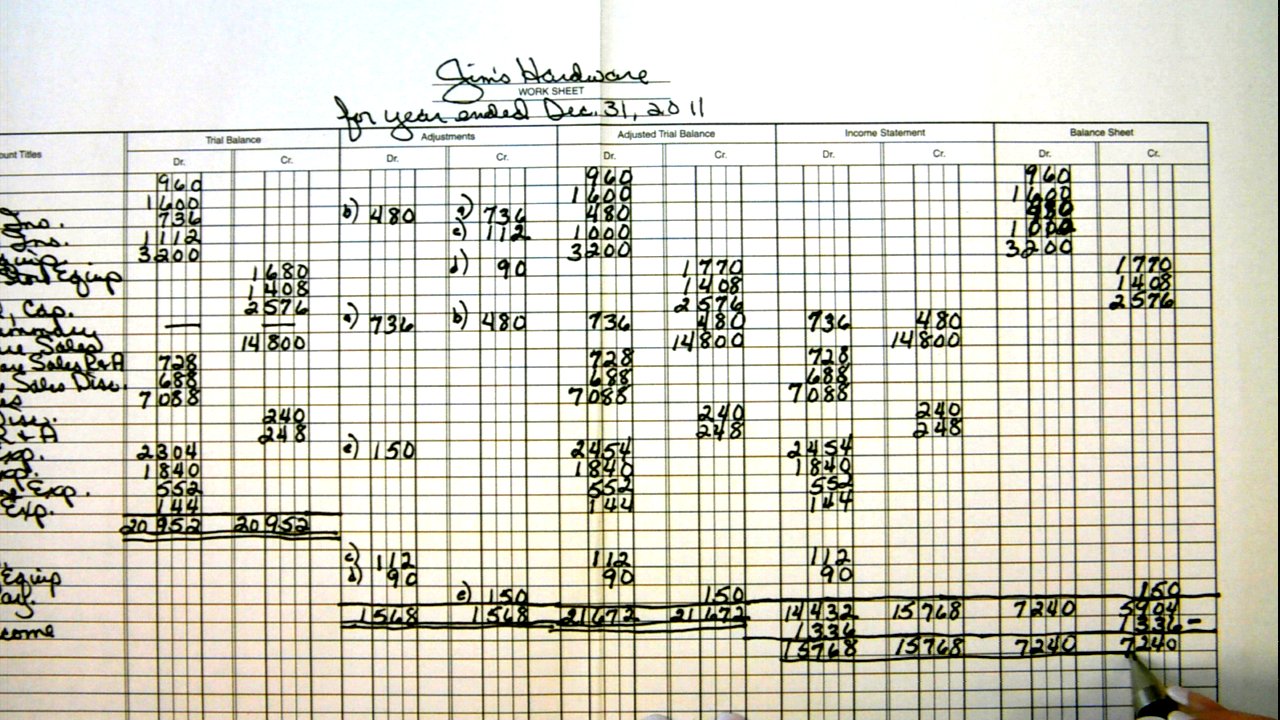 Jim's Hardware
WORK SHEET
for year ended Dec. 31, 2011
ount Titles Trial Balance Adjustments Adjusted Trial Balance Income Statement Balance Sheet
Dr. Cr. Dr. Cr. Dr. Cr. Dr. Cr. Dr. Cr.
960 960 960
1600 1600 1600
Ins. 736 b) 480 a) 736 480 480
Ins. 1112 c) 112 1000 1000
3200 3200 3200
Equip 1680 d) 90 1770 1770
1408 1408 1408
Cap. 2576 2576 2576
— — a) 736 b) 480 736 480 736 480
Sales 14800 14800 14800
Sales R+A 728 728 728
Sales Disc. 688 688 688
7088 7088 7088
240 240 240
R + A 248 248 248
2304 e) 150 2454 2454
1840 1840 1840
Exp. 552 552 552
Exp. 144 144 144
20952 20952
c) 112 112 112
Equip d) 90 90 90
e) 150 150 150
1568 1568 21672 21672 14432 15768 7240 5904
come 1336 1336 –
15768 15768 7240 7240